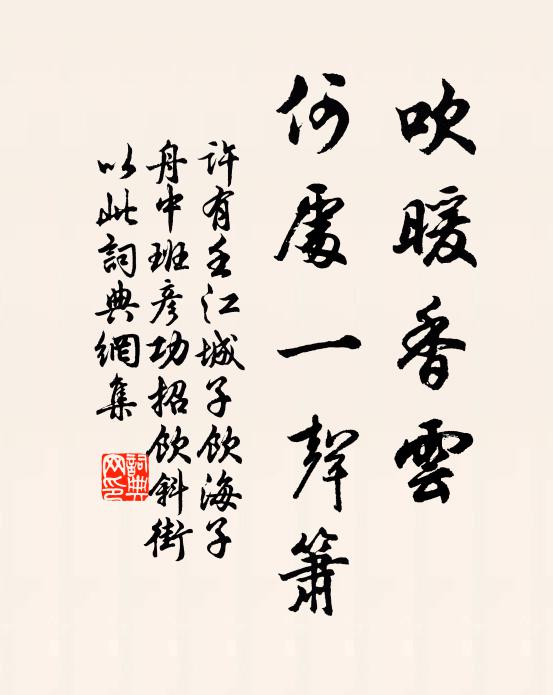 吹暖香雲
何處一聲簫
許有壬江城子飲海子
舟中班彥功招飲斜街
以此詞典網集
詞典網印